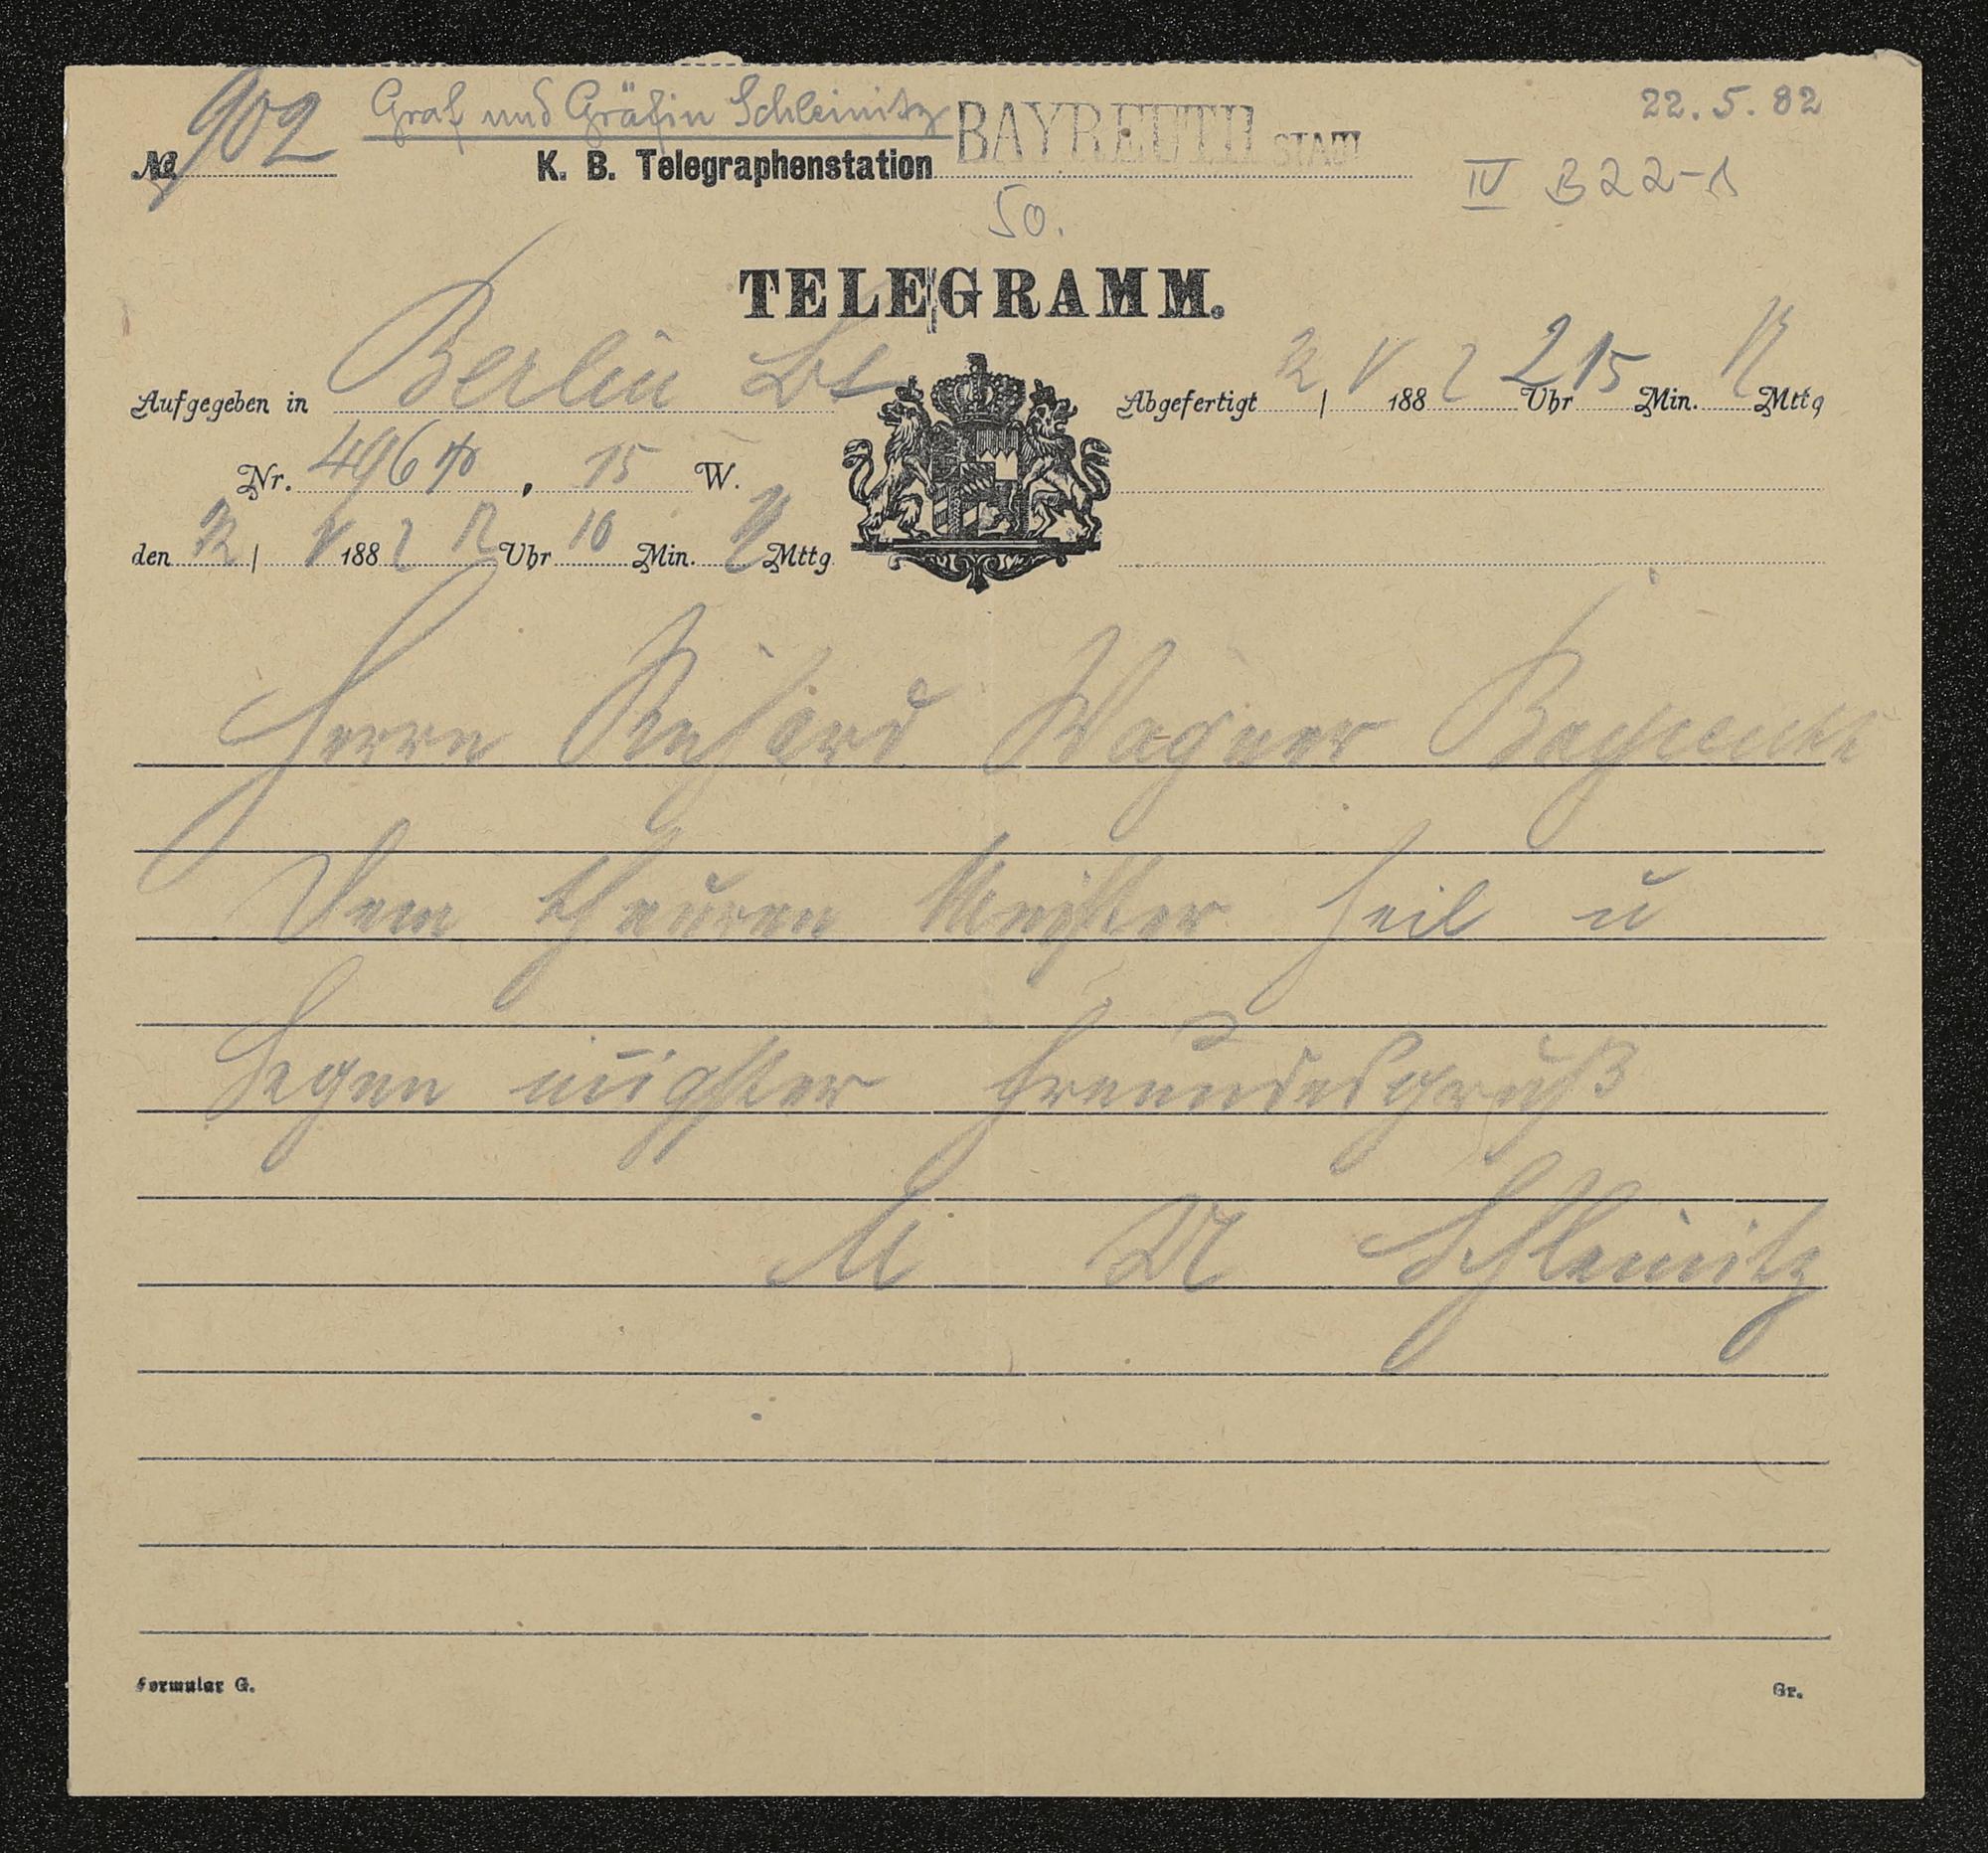 Graf und Gräfin Schleinitz
22.5.82
No 902
K. B. Telegraphenstation BAYREUTH STADT
IV B 22-1
50.
TELEGRAMM.
Aufgegeben in Berlin
Abgefertigt 22 | V 1882 2 Uhr 15 Min. N Mttg
Nr. 496, 15 W.
den 22 | V 1882 12 Uhr 10 Min. N Mttg
Herrn Richard Wagner Bayreuth
Dem theuren Meister Heil u
Segen innigster Freundesgruß
M A Schleinitz
Formular G.
Gr.